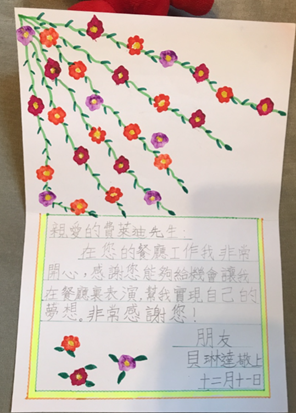 親愛的費萊迪先生:
在您的餐廳工作我非常
開心,感謝您能夠給機會讓我
在餐廳裏表演,幫我實現自己的
夢想。非常感謝您!
朋友
貝琳達敬上
十二月十一日